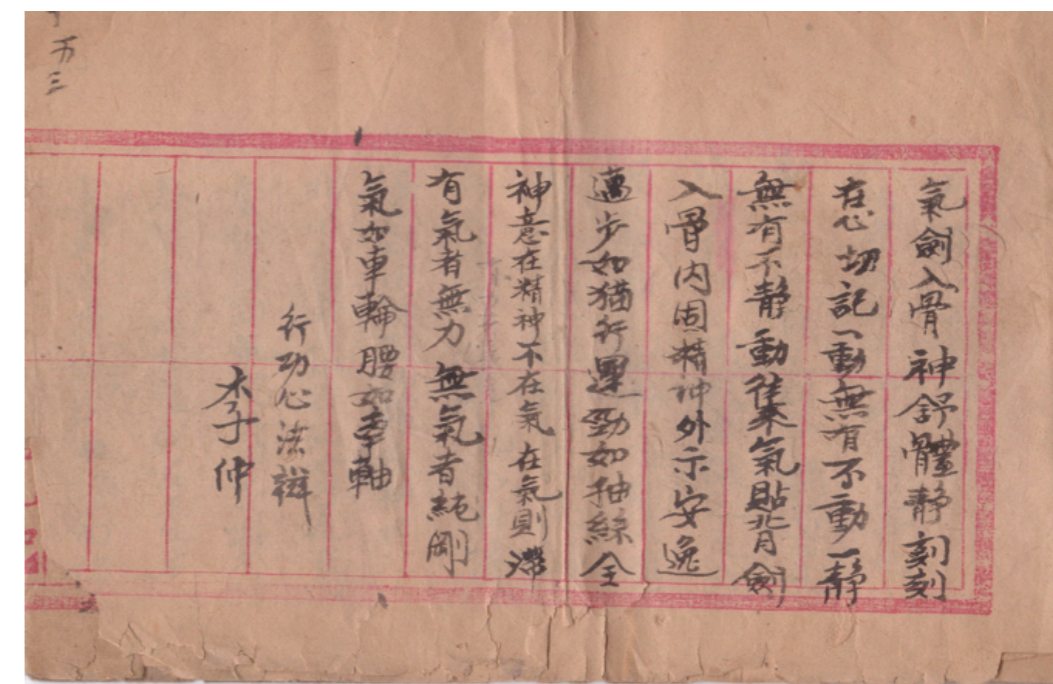 氣劍入骨神舒體靜刻刻
在心切記一動無有不動一靜
無有不靜動徃來氣貼背劍
入骨内固精神外示安逸
邁步如猫行運勁如抽絲全
神意在精神不在氣在氣則滯
有氣者無力無氣者純剛
氣如車輪腰如車軸
行功心法
李仲
万三